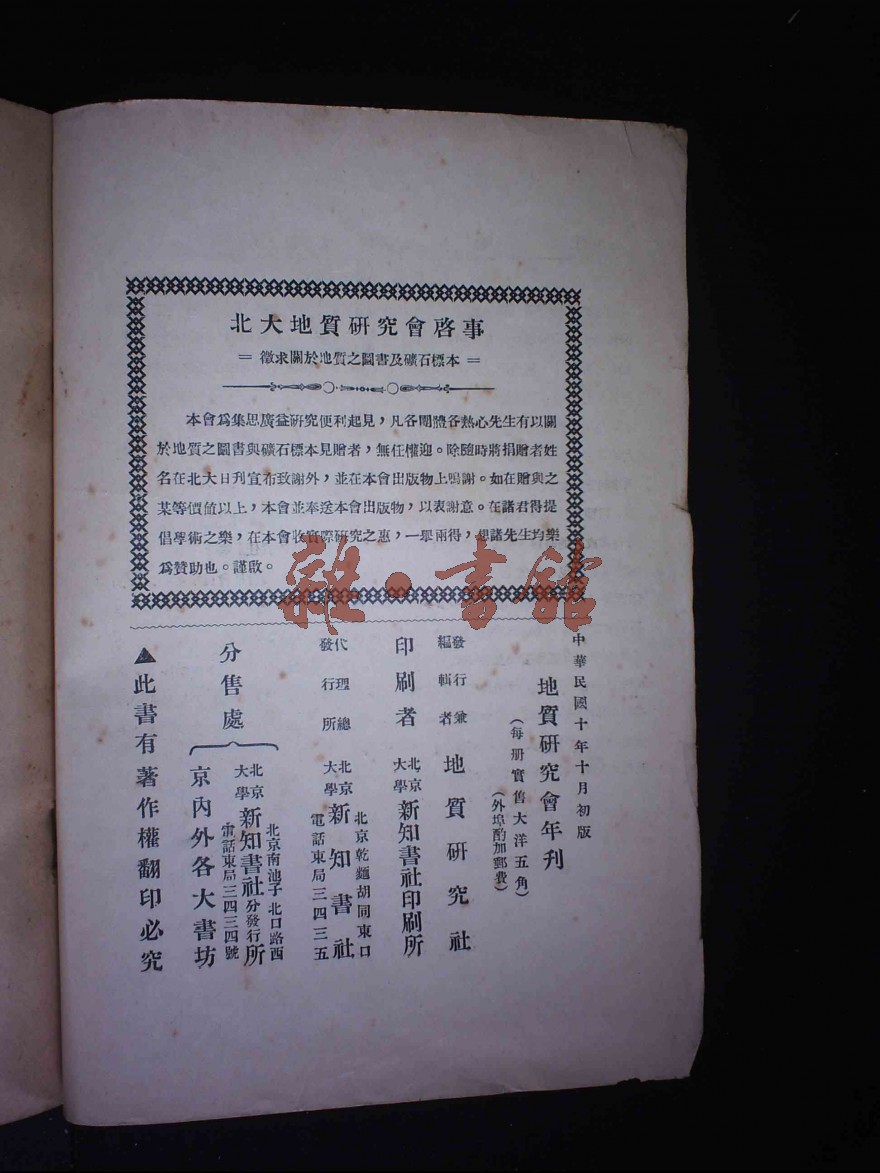 北大地質研究會啓事
=徵求關於地質之圖書及礦石標本=
本會爲集思廣益研究便利起見，凡各團體各熱心先生有以關
於地質之圖書與礦石標本見贈者，無任懽迎。除隨時將捐贈者姓
名在北大日刊宣布致謝外，並在本會出版物上鳴謝。如在贈與之
某等價値以上，本會並奉送本會出版物，以表謝意。在諸君得提
倡學術之樂，在本會收實際研究之惠，一舉兩得，想諸先生均樂
爲贊助也。謹啟。
雜·書館
中華民國十年十月初版
地質研究會年刋
（每册實售大洋五角）
（外埠酌加郵費）
發行兼編輯者 地質研究社
印刷者 北京大學新知書社印刷所
代理總發行所 北京大學新知書社
北京乾麵胡同東口
電話東局三四三五
分售處
北京大學新知書社分發行所
北京南池子北口路西
電話東局三四三四號
京內外各大書坊
▲此書有著作權翻印必究